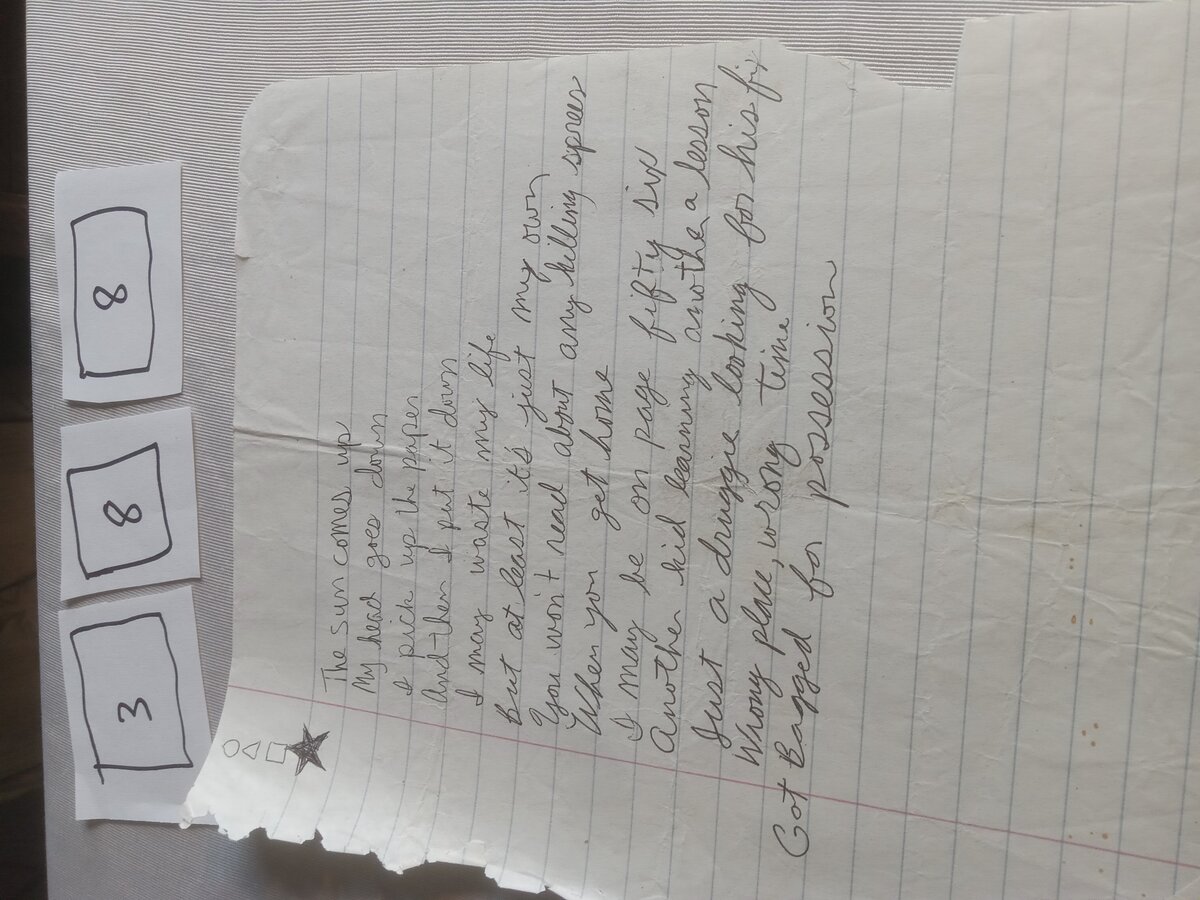 3 8 8
The sun comes up
My head goes down
I pick up the paper
And then I put it down
I may waste my life
But at least it's just my own
You won't read about any killing sprees
When you get home
I may be on page fifty six
Another kid learning another a lesson
Just a druggie looking for his fix
Wrong place, wrong time
Got Bagged for possession